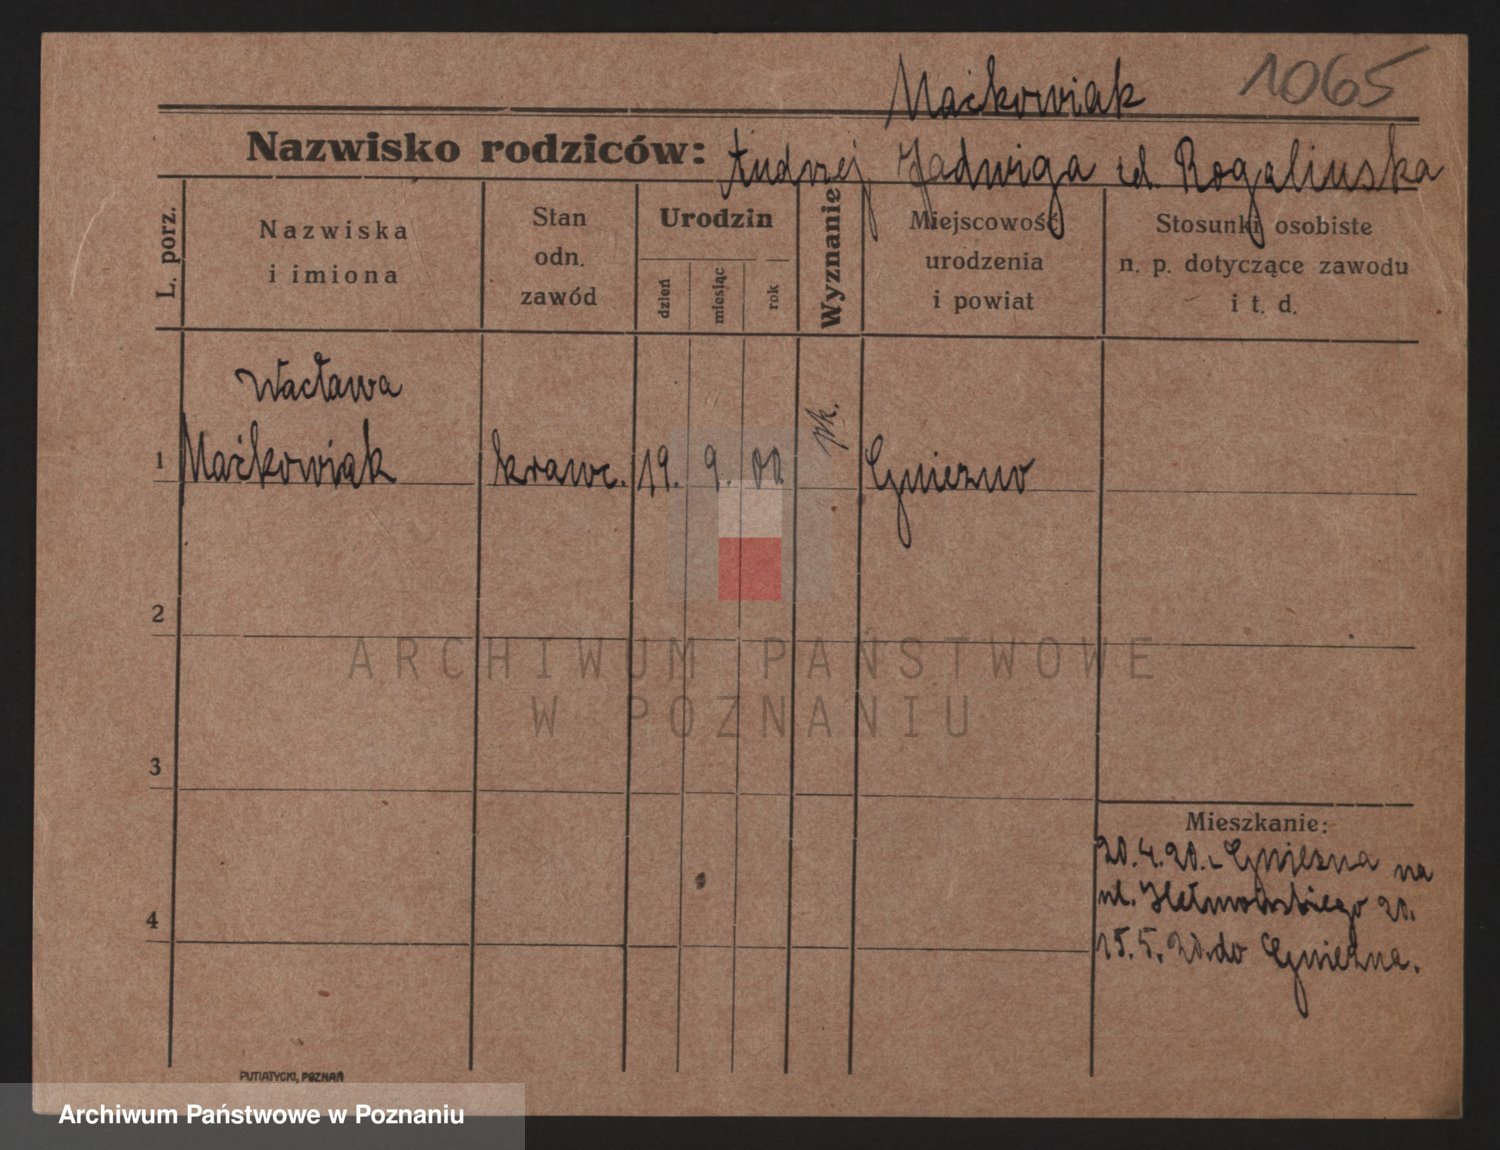 Maćkowiak 1065
Nazwisko rodziców: Andrzej, Jadwiga zd. Rogalinska
L. porz.
Nazwiska
i imiona
Stan
odn.
zawód
Urodzin
dzień
miesiąc
rok
Wyznanie
Miejscowość
urodzenia
i powiat
Stosunki osobiste
n. p. dotyczące zawodu
i t. d.
Wacława
1 Maćkowiak krawc. 19. 9. 00. rk. Gniezno
2
ARCHIWUM PAŃSTWOWE
W POZNANIU
3
Mieszkanie:
20.4.20. Gniezna na
ul. 20.
4
15.5.20. do Gniezna.
PUTIATYCKI, POZNAŃ
Archiwum Państwowe w Poznaniu